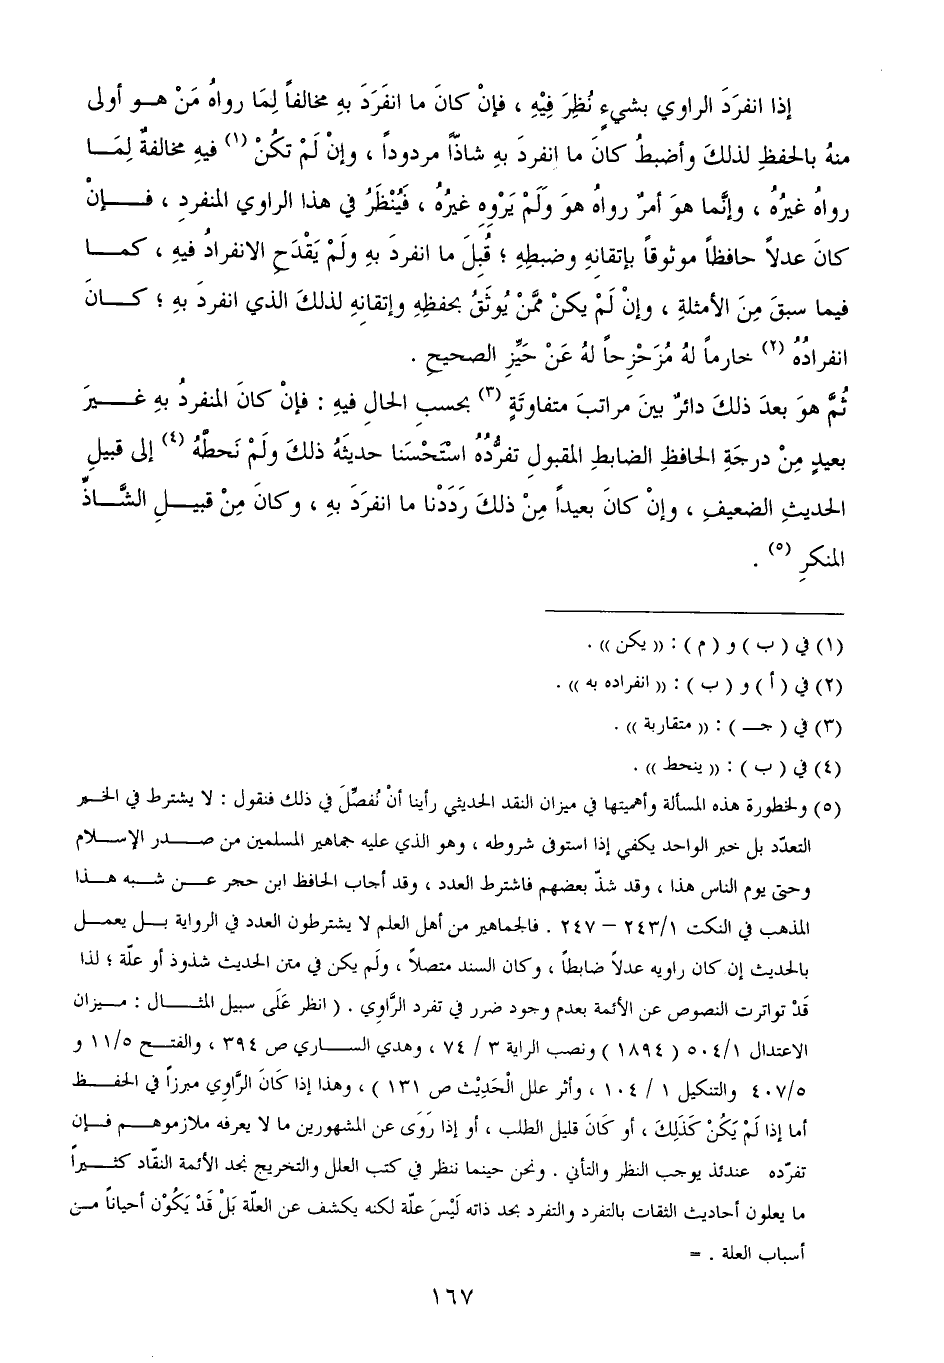 إذا انفردَ الراوي بشيءٍ نُظِرَ فِيْهِ ، فإنْ كانَ ما انفَرَدَ بهِ مخالفاً لِمَا رواهُ مَنْ هو أولى
منهُ بالحفظِ لذلكَ وأضبطُ كانَ ما انفردَ بهِ شاذّاً مردوداً ، وإنْ لَمْ تكُنْ (١) فيهِ مخالفةٌ لِمَا
رواهُ غيرُهُ ، وإنَّما هوَ أمرٌ رواهُ هوَ ولَمْ يَرْوِهِ غيرُهُ ، فَيُنْظَرُ في هذا الراوي المنفردِ ، فإنْ
كانَ عدلاً حافظاً موثوقاً بإتقانِهِ وضبطِهِ ؛ قُبِلَ ما انفردَ بهِ ولَمْ يَقْدَحِ الانفرادُ فيهِ ، كما
فيما سبقَ مِنَ الأمثلةِ ، وإنْ لَمْ يكنْ ممَّنْ يُوثَقُ بحفظِهِ وإتقانِهِ لذلكَ الذي انفردَ بهِ ؛ كانَ
انفرادُهُ (٢) خارماً لهُ مُزَحْزِحاً لهُ عَنْ حَيِّزِ الصحيحِ .
ثُمَّ هوَ بعدَ ذلكَ دائرٌ بينَ مراتبَ متفاوتَةٍ (٣) بحسبِ الحالِ فيهِ : فإنْ كانَ المنفردُ بهِ غيرَ
بعيدٍ مِنْ درجَةِ الحافظِ الضابطِ المقبولِ تفرُّدُهُ اسْتَحْسَنا حديثَهُ ذلكَ ولَمْ نَحطَّهُ (٤) إلى قبيلِ
الحديثِ الضعيفِ ، وإنْ كانَ بعيداً مِنْ ذلكَ رَدَدْنا ما انفرَدَ بهِ ، وكانَ مِنْ قبيلِ الشَّاذِّ
المنكرِ (٥) .
(١) في ( ب ) و ( م ) : (( يكن )) .
(٢) في ( أ ) و ( ب ) : (( انفراده به )) .
(٣) في ( جـ ) : (( متقاربة )) .
(٤) في ( ب ) : (( ينحط )) .
(٥) ولخطورة هذه المسألة وأهميتها في ميزان النقد الحديثي رأينا أنْ نُفصِّلَ في ذلك فنقول : لا يشترط في الخبر
التعدّد بل خبر الواحد يكفي إذا استوفى شروطه ، وهو الذي عليه جماهير المسلمين من صدر الإسلام
وحتى يوم الناس هذا ، وقد شذّ بعضهم فاشترط العدد ، وقد أجاب الحافظ ابن حجر عن شبه هذا
المذهب في النكت ٢٤٣/١ – ٢٤٧ . فالجماهير من أهل العلم لا يشترطون العدد في الرواية بل يعمل
بالحديث إن كان راويه عدلاً ضابطاً ، وكان السند متصلاً ، ولَم يكن في متن الحديث شذوذ أو علّة ؛ لذا
قَدْ تواترت النصوص عن الأئمة بعدم وجود ضرر في تفرد الرَّاوي . ( انظر عَلَى سبيل المثال : ميزان
الاعتدال ٥٠٤/١ ( ١٨٩٤ ) ونصب الراية ٣ / ٧٤ ، وهدي الساري ص ٣٩٤ ، والفتح ١١/٥ و
٤٠٧/٥ والتنكيل ١ / ١٠٤ ، وأثر علل الْحَدِيْث ص ١٣١ ) ، وهذا إذا كَانَ الرَّاوي مبرزاً في الحفظ
أما إذا لَمْ يَكُنْ كَذَلِكَ ، أو كَانَ قليل الطلب ، أو إذا رَوَى عن المشهورين ما لا يعرفه ملازموهم فإن
تفرّده عندئذ يوجب النظر والتأني . ونحن حينما ننظر في كتب العلل والتخريج نجد الأئمة النقاد كثيراً
ما يعلون أحاديث الثقات بالتفرد والتفرد بحد ذاته لَيْسَ علّة لكنه يكشف عن العلّة بَلْ قَدْ يَكُوْن أحياناً من
أسباب العلة . =
١٦٧